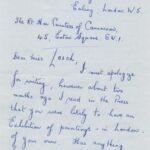 Ealing London W.5.
The Rt Hon Countess of
45, Eaton Square, S.W.1.
Dear Miss
I must apologise
for writing, however about two
months ago I read in the Press
that you were likely to have an
Exhibition of paintings - in London -
of your own. Has anything